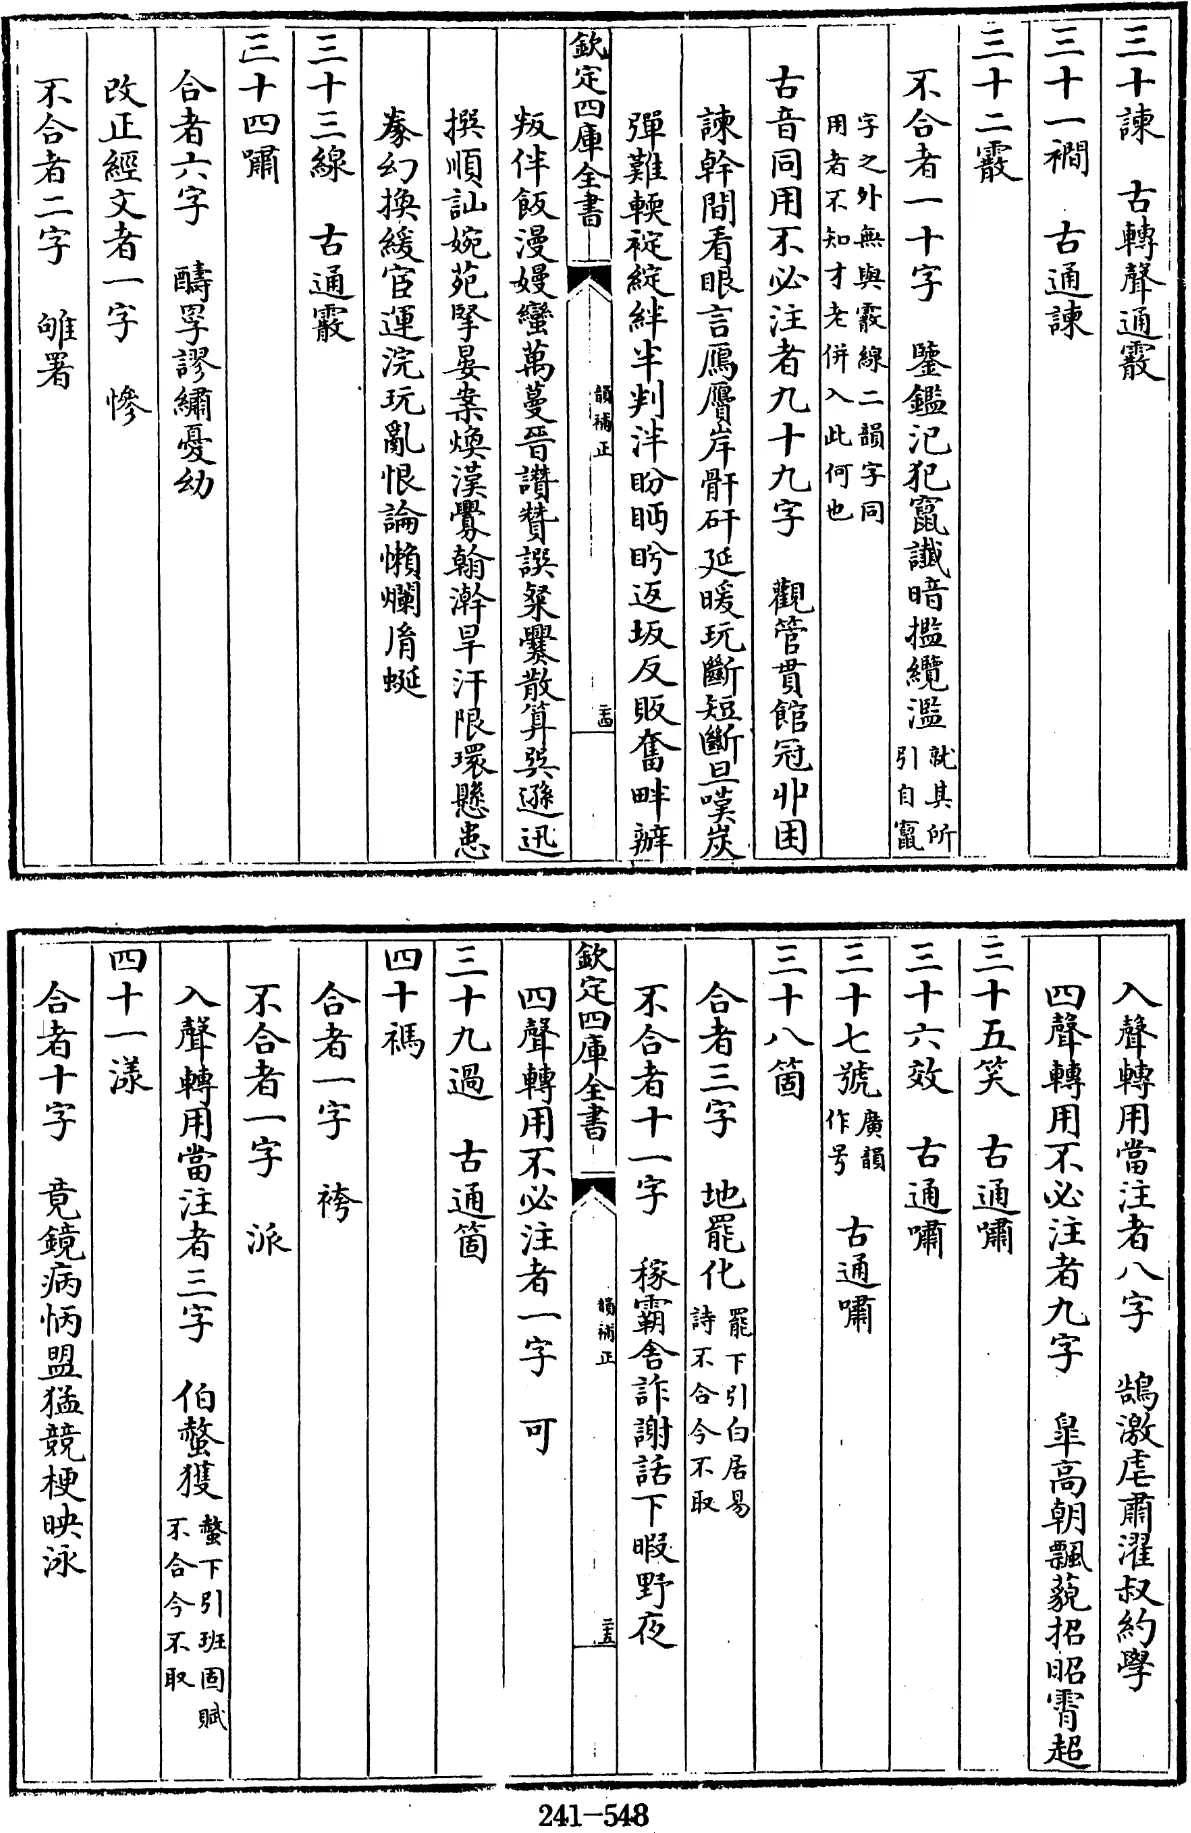 三十諫　古轉聲通霰
三十一襉　古通諫
三十二霰
不合者一十字　鑒鑑汜犯竄讖暗㩜纜濫就其所引自竄
字之外無與霰線二韻字同用者不知才老併入此何也
古音同用不必注者九十九字　觀管貫館冠丱困
諫幹間看眼言鴈贋岸骭矸延暖玩斷短斷旦嘆炭
彈難輭袏綻絆半判泮盼眄盻返坂反販奮畔辦
欽定四庫全書
韻補正
二十四
叛伴飯漫嫚蠻萬蔓晉讚贊譔粲爨散算巽遜迅
撰順訕婉苑掔晏案煥漢霿翰澣旱汗限環懸患
豢幻換緩宦運浣玩亂恨論懶爛肙蜒
三十三線　古通霰
三十四嘯
合者六字　醻罦謬繡憂幼
改正經文者一字　慘
不合者二字　雊署
入聲轉用當注者八字　鵠激虐肅濯叔約學
四聲轉用不必注者九字　皐高朝飄藐招昭霄超
三十五笑　古通嘯
三十六效　古通嘯
三十七號廣韻作号　古通嘯
三十八箇
合者三字　地罷化罷下引白居易詩不合今不取
不合者十一字　稼霸舍詐謝話下暇野夜
欽定四庫全書
韻補正
二十五
四聲轉用不必注者一字　可
三十九過　古通箇
四十禡
合者一字　袴
不合者一字　派
入聲轉用當注者三字　伯螫獲螫下引班固賦不合今不取
四十一漾
合者十字　竟鏡病怲盟猛競梗映泳
241-548